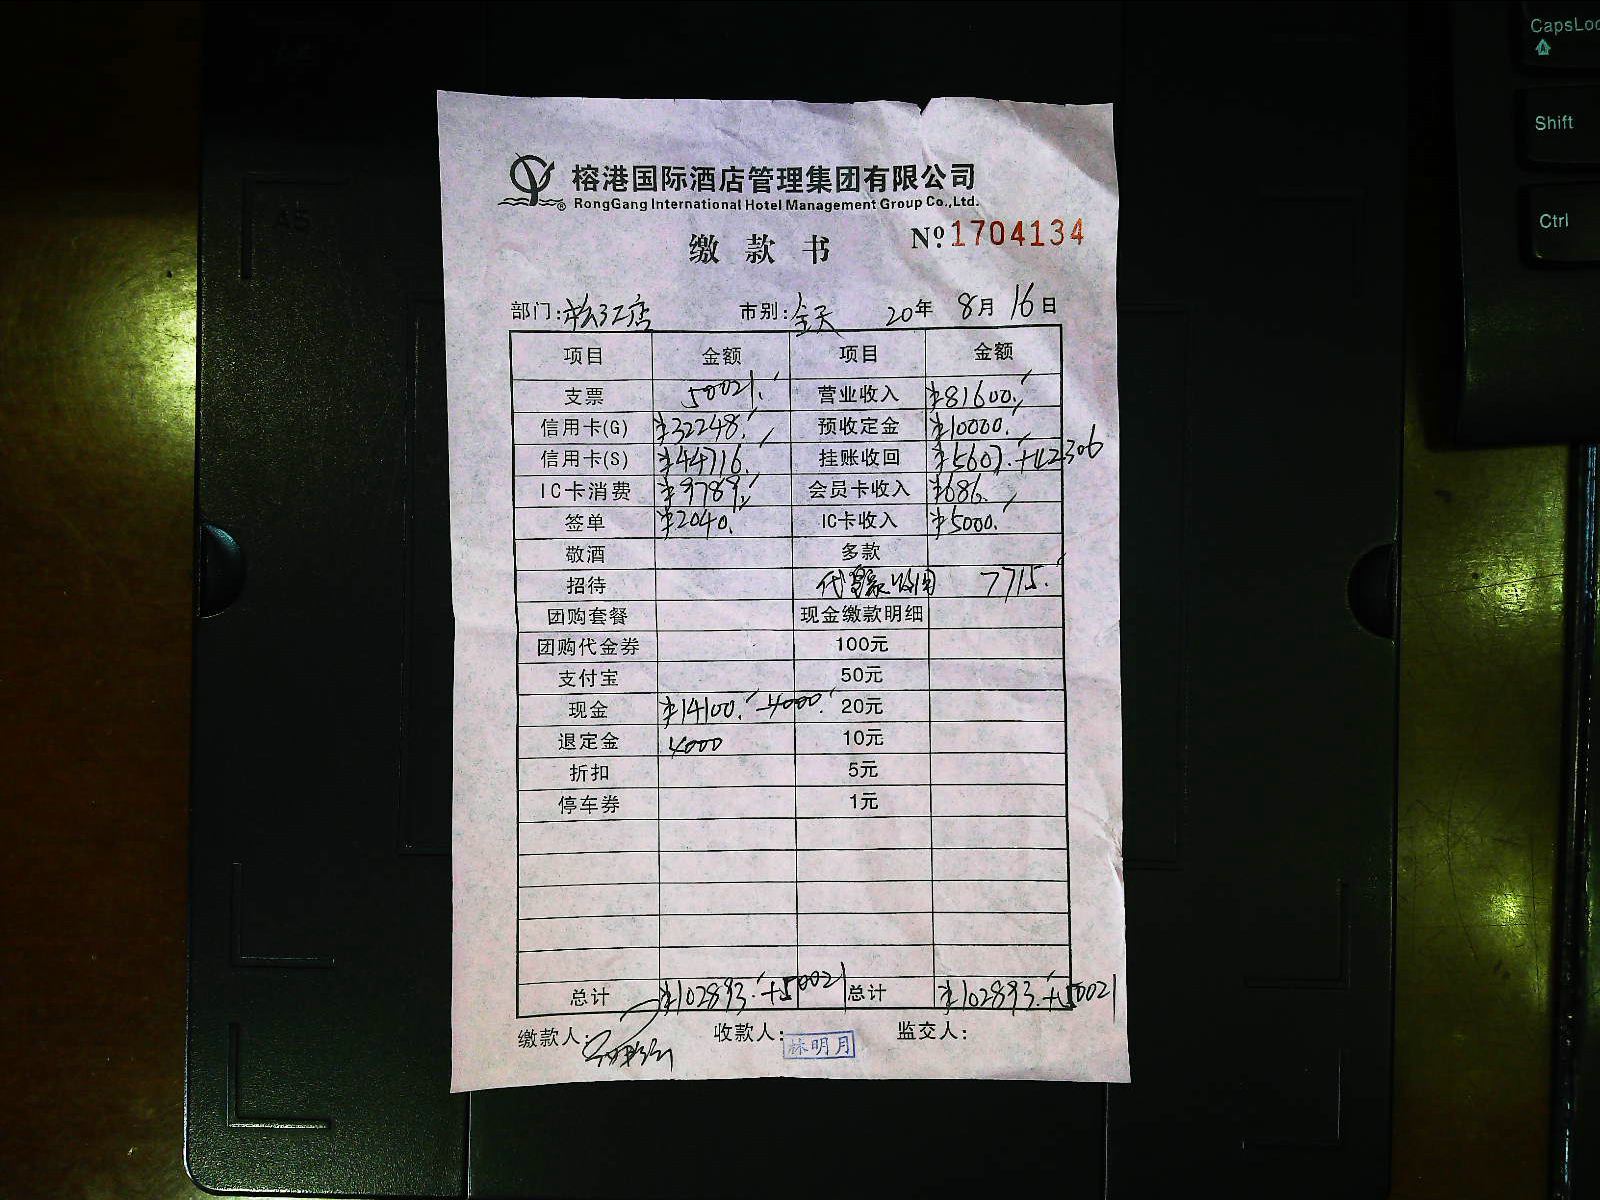 榕港国际酒店管理集团有限公司
RongGang International Hotel Management Group Co.,Ltd.
缴款书 Nº 1704134
部门: 松江店 市别: 全天 20年 8月 16日
项目 金额 项目 金额
支票 50021. 营业收入 ¥81600.
信用卡(G) ¥32248. 预收定金 ¥10000.
信用卡(S) ¥44716. 挂账收回 ¥5607.+42306
IC卡消费 ¥9789. 会员卡收入 ¥686.
签单 ¥2040. IC卡收入 ¥5000.
敬酒 多款
招待 7715.
团购套餐 现金缴款明细
团购代金券 100元
支付宝 50元
现金 ¥14100.-4000. 20元
退定金 4000 10元
折扣 5元
停车券 1元
总计 ¥102893.+50021 总计 ¥102893.+50021
缴款人: 收款人: 林明月 监交人:
CapsLoc
Shift
Ctrl
A5